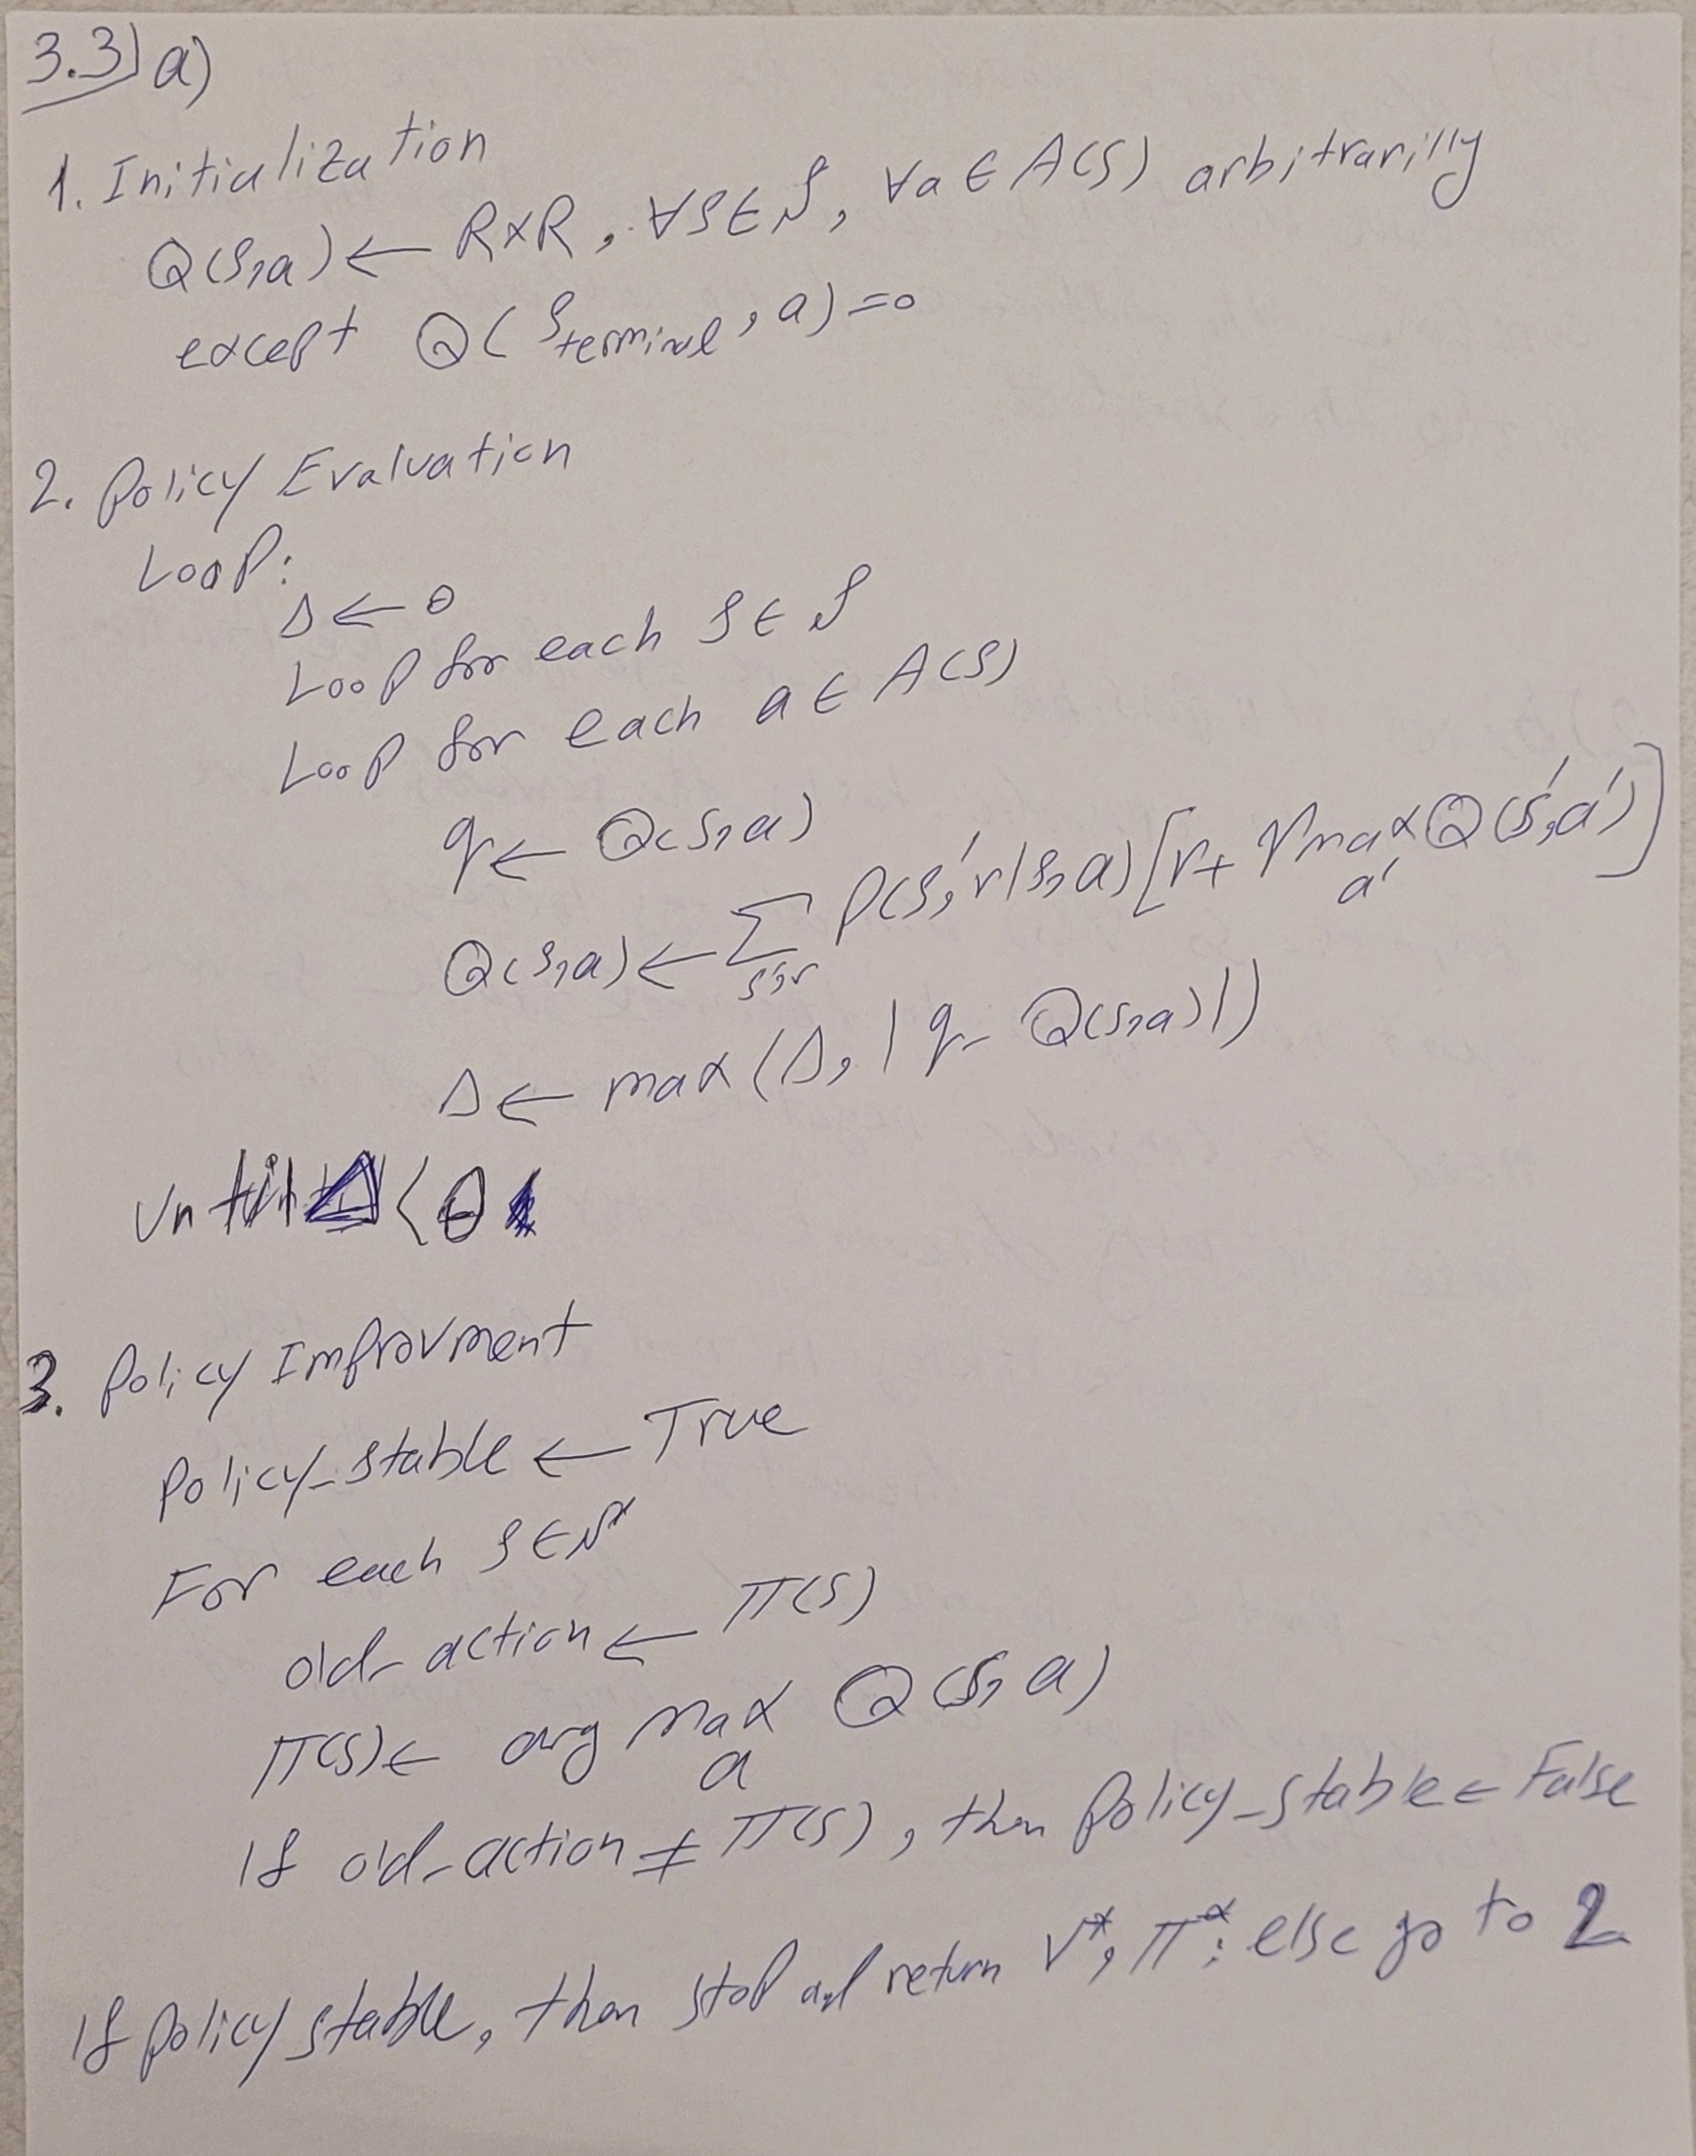 3.3) a)
1. Initialization
Q(s,a) ← R×R, ∀s∈S, ∀a∈A(s) arbitrarilly
except Q(s_terminal, a) = 0
2. Policy Evaluation
Loop:
Δ ← 0
Loop for each s ∈ S
Loop for each a ∈ A(s)
q ← Q(s,a)
Q(s,a) ← Σ_{s',r} P(s',r|s,a)[r + γ max_{a'} Q(s',a')]
Δ ← max(Δ, |q - Q(s,a)|)
Until Δ < θ
3. Policy Improvment
Policy_stable ← True
For each s ∈ S
old_action ← π(s)
π(s) ← arg max_a Q(s,a)
If old_action ≠ π(s), then policy_stable ← False
If policy stable, then stop and return V*, π*; else go to 2